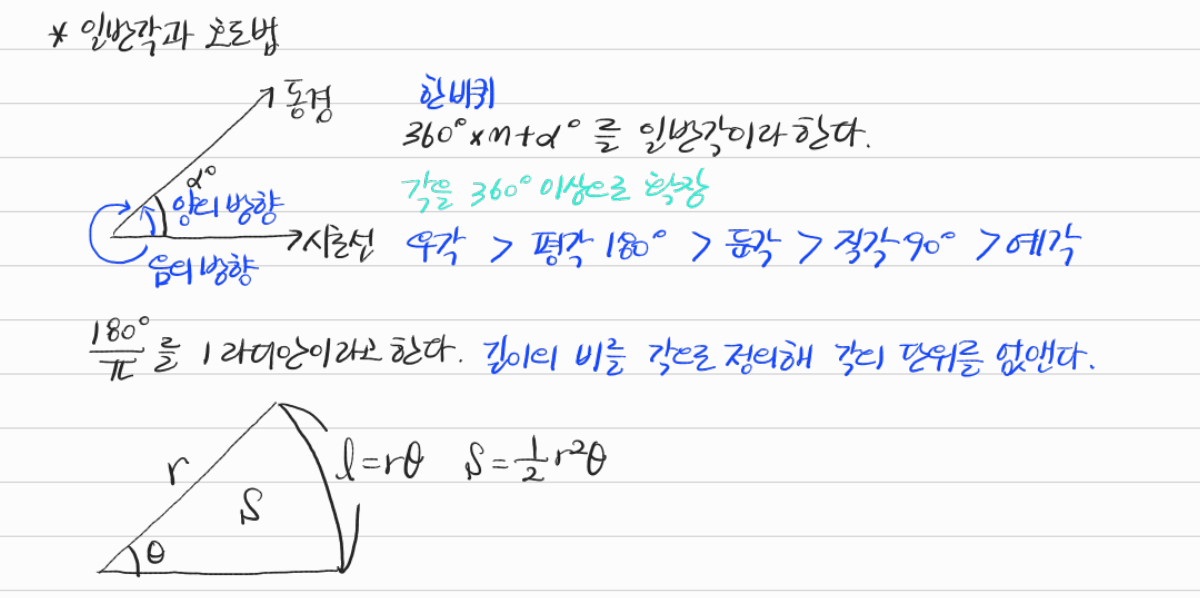 * 일반각과 호도법
동경
한바퀴
360° × n + α° 를 일반각이라 한다.
α°
각을 360° 이상으로 확장
양의 방향
시초선
우각 > 평각 180° > 둔각 > 직각 90° > 예각
음의 방향
180°/π 를 1 라디안이라고 한다. 길이의 비를 각으로 정의해 각의 단위를 없앤다.
r
l = rθ S = 1/2 r²θ
S
θ